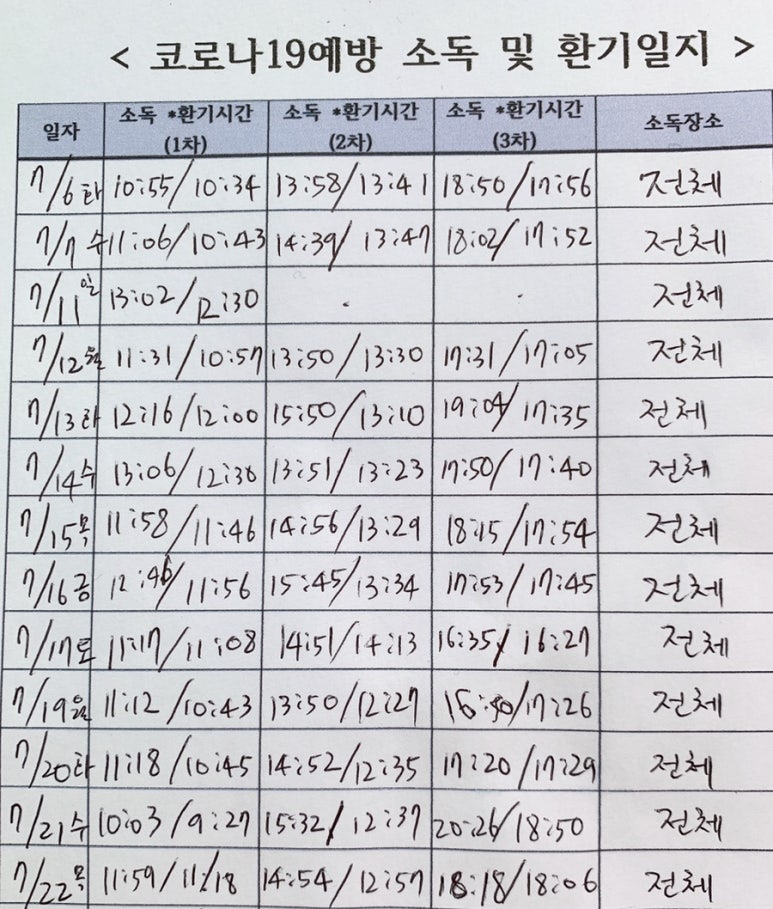 < 코로나19예방 소독 및 환기일지 >
일자 소독 *환기시간 (1차) 소독 *환기시간 (2차) 소독 *환기시간 (3차) 소독장소
7/6 화 10:55/10:34 13:58/13:41 18:50/17:56 전체
7/7 수 11:06/10:43 14:39/13:47 18:02/17:52 전체
7/11 일 13:02/12:30 . . 전체
7/12 월 11:31/10:57 13:50/13:30 17:31/17:05 전체
7/13 화 12:16/12:00 15:50/13:10 19:04/17:35 전체
7/14 수 13:06/12:30 13:51/13:23 17:50/17:40 전체
7/15 목 11:58/11:46 14:56/13:29 18:15/17:54 전체
7/16 금 12:46/11:56 15:45/13:34 17:53/17:45 전체
7/17 토 11:17/11:08 14:51/14:13 16:35/16:27 전체
7/19 월 11:12/10:43 13:50/12:27 /17:26 전체
7/20 화 11:18/10:45 14:52/12:35 17:20/17:29 전체
7/21 수 10:03/9:27 15:32/12:37 20:26/18:50 전체
7/22 목 11:59/11:18 14:54/12:57 18:18/18:06 전체